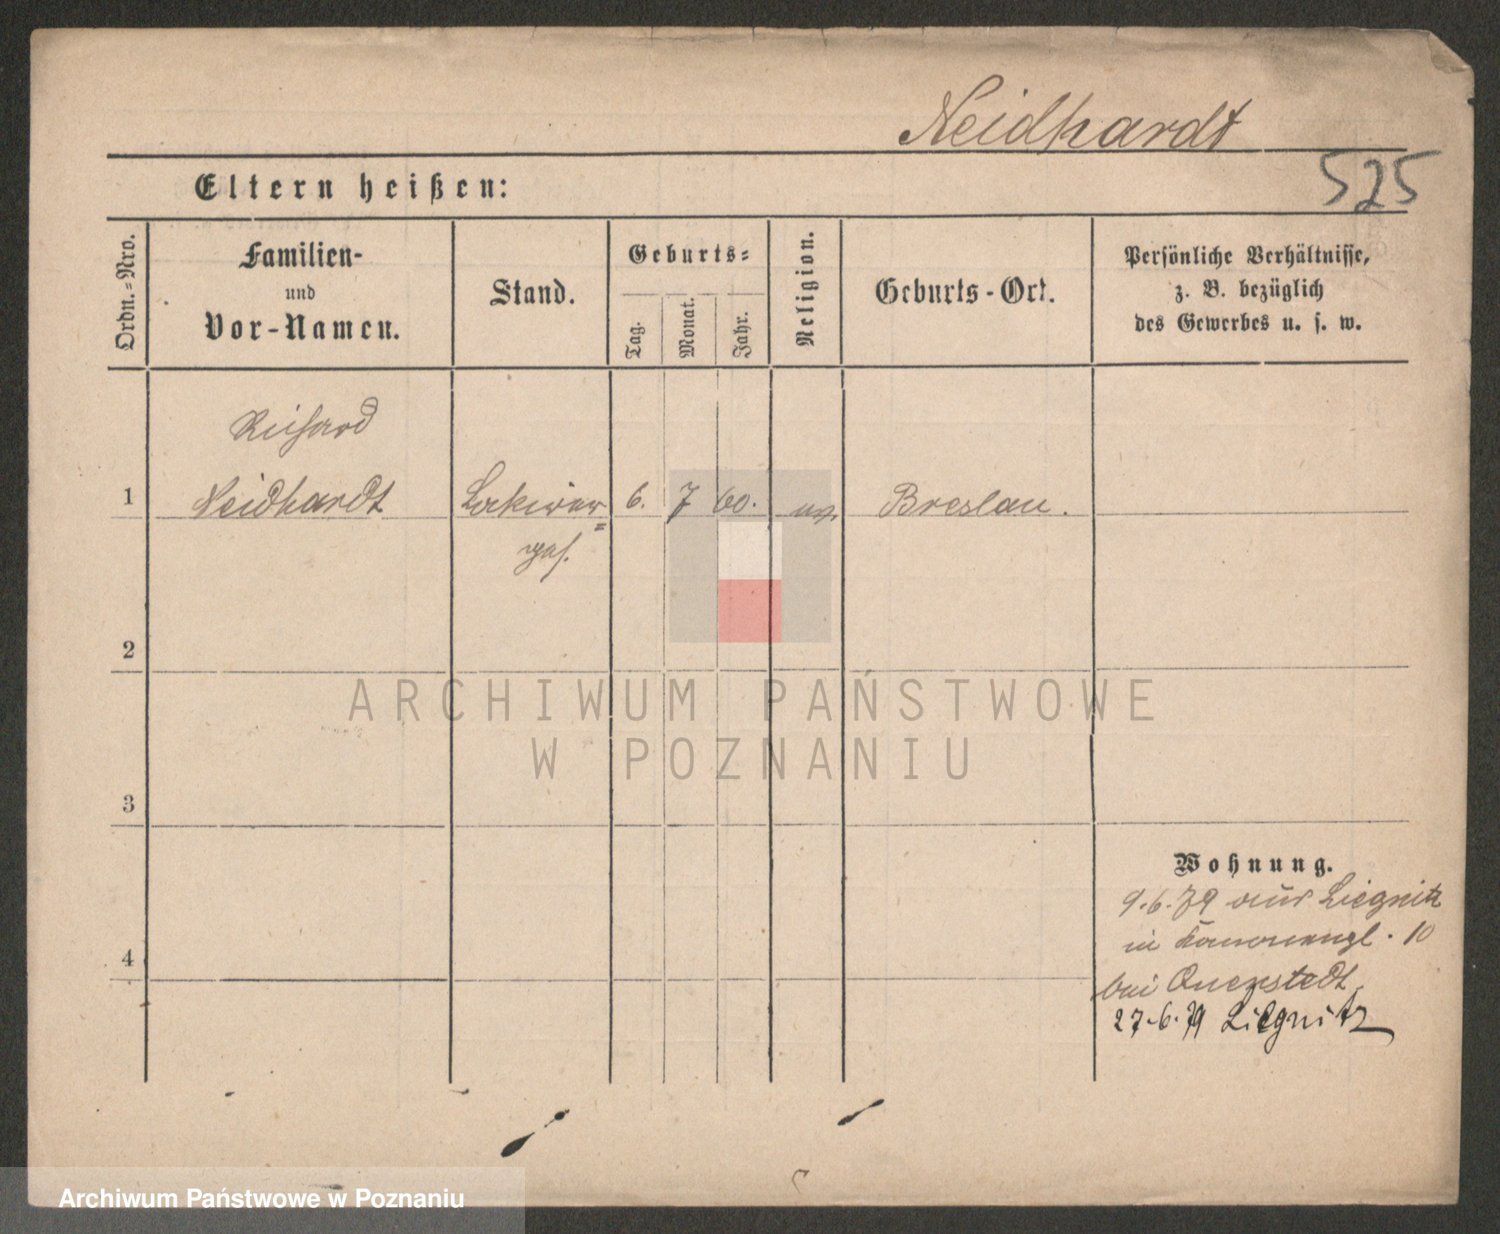 Neidhardt
525
Eltern heißen:
Ordn.-Nro.
Familien-
und
Vor-Namen.
Stand.
Geburts-
Tag.
Monat.
Jahr.
Religion.
Geburts-Ort.
Persönliche Verhältnisse,
z. B. bezüglich
des Gewerbes u. s. w.
Richard
1 Neidhardt Lakirer= 6. 7 60. ev. Breslau.
geh.
2
ARCHIWUM PAŃSTWOWE
W POZNANIU
3
Wohnung.
9.6.79 aus Liegnitz
in Kanonengl. 10
4
bei Querstedt
27.6.79 Liegnitz
Archiwum Państwowe w Poznaniu